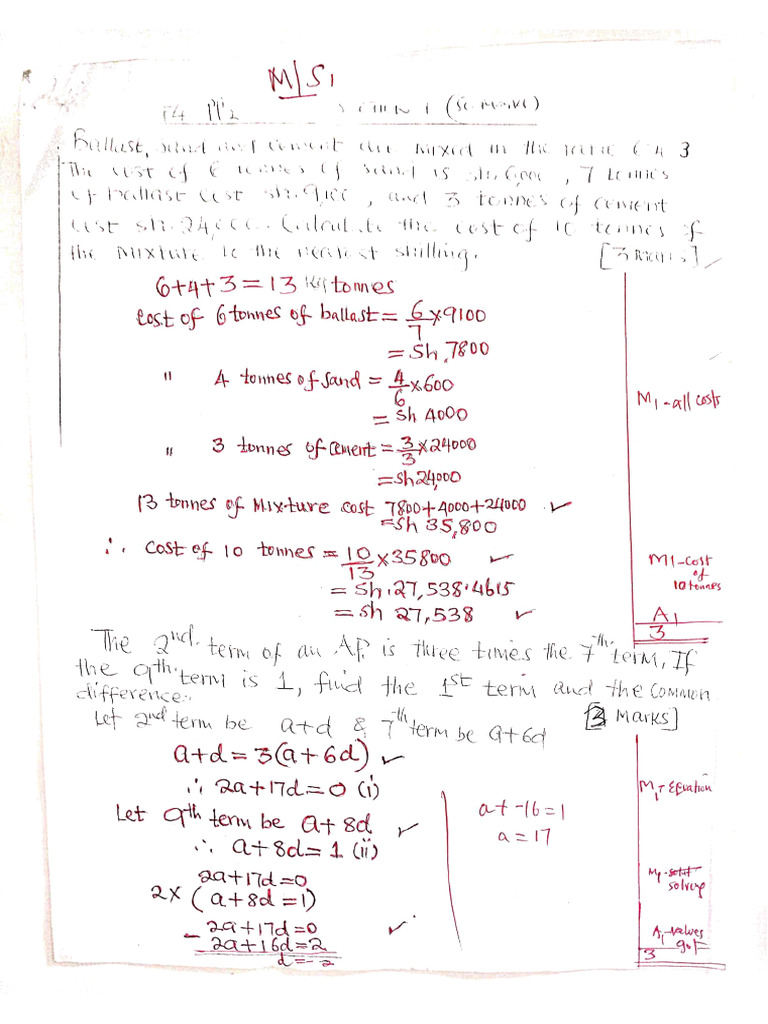 M/S1
F4 PP2 SECTION I
Ballast, sand and cement are mixed in the ratio 6:4:3
The cost of 6 tonnes of sand is sh.6,000, 7 tonnes
of ballast cost sh.9,100, and 3 tonnes of cement
cost sh.24,000. Calculate the cost of 10 tonnes of
the mixture to the nearest shilling. [3 Marks]
6+4+3=13 tonnes
Cost of 6 tonnes of ballast = 6/7 x9100
= Sh.7800
" 4 tonnes of sand = 4/6 x600
= Sh 4000
M1-all costs
" 3 tonnes of cement = 3/3 x24000
= sh24,000
13 tonnes of Mixture cost 7800+4000+24000 ✓
= Sh 35,800
∴ Cost of 10 tonnes = 10/13 x35800 ✓
M1-cost of 10 tonnes
= Sh.27,538.4615
= Sh 27,538 ✓
A1
3
The 2nd term of an A.P. is three times the 7th term, If
the 9th term is 1, find the 1st term and the common
difference.
[3 Marks]
Let 2nd term be a+d & 7th term be a+6d
a+d=3(a+6d) ✓
∴ 2a+17d=0 (i)
M1-Equation
Let 9th term be a+8d ✓
∴ a+8d=1 (ii)
2a+17d=0
2x (a+8d=1)
M1-solving
- 2a+17d=0 ✓
2a+16d=2
d=-2
a+-16=1
a=17
A1-values got
3